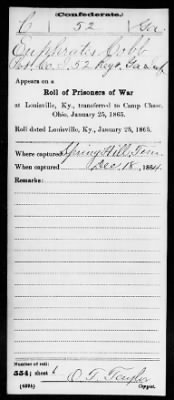 (Confederate.)
C 52 Ga.
Euphrates Cobb
Co. 52 Reg't Ga Inf
Appears on a
Roll of Prisoners of War
at Louisville, Ky., transferred to Camp Chase,
Ohio, January 25, 1865.
Roll dated Louisville, Ky., January 25, 1865.
Where captured Spring Hill, Ten
When captured Dec. 18, 1864.
Remarks:
Number of roll:
554; sheet 6
O. T. Taylor
(639b) Copyist.